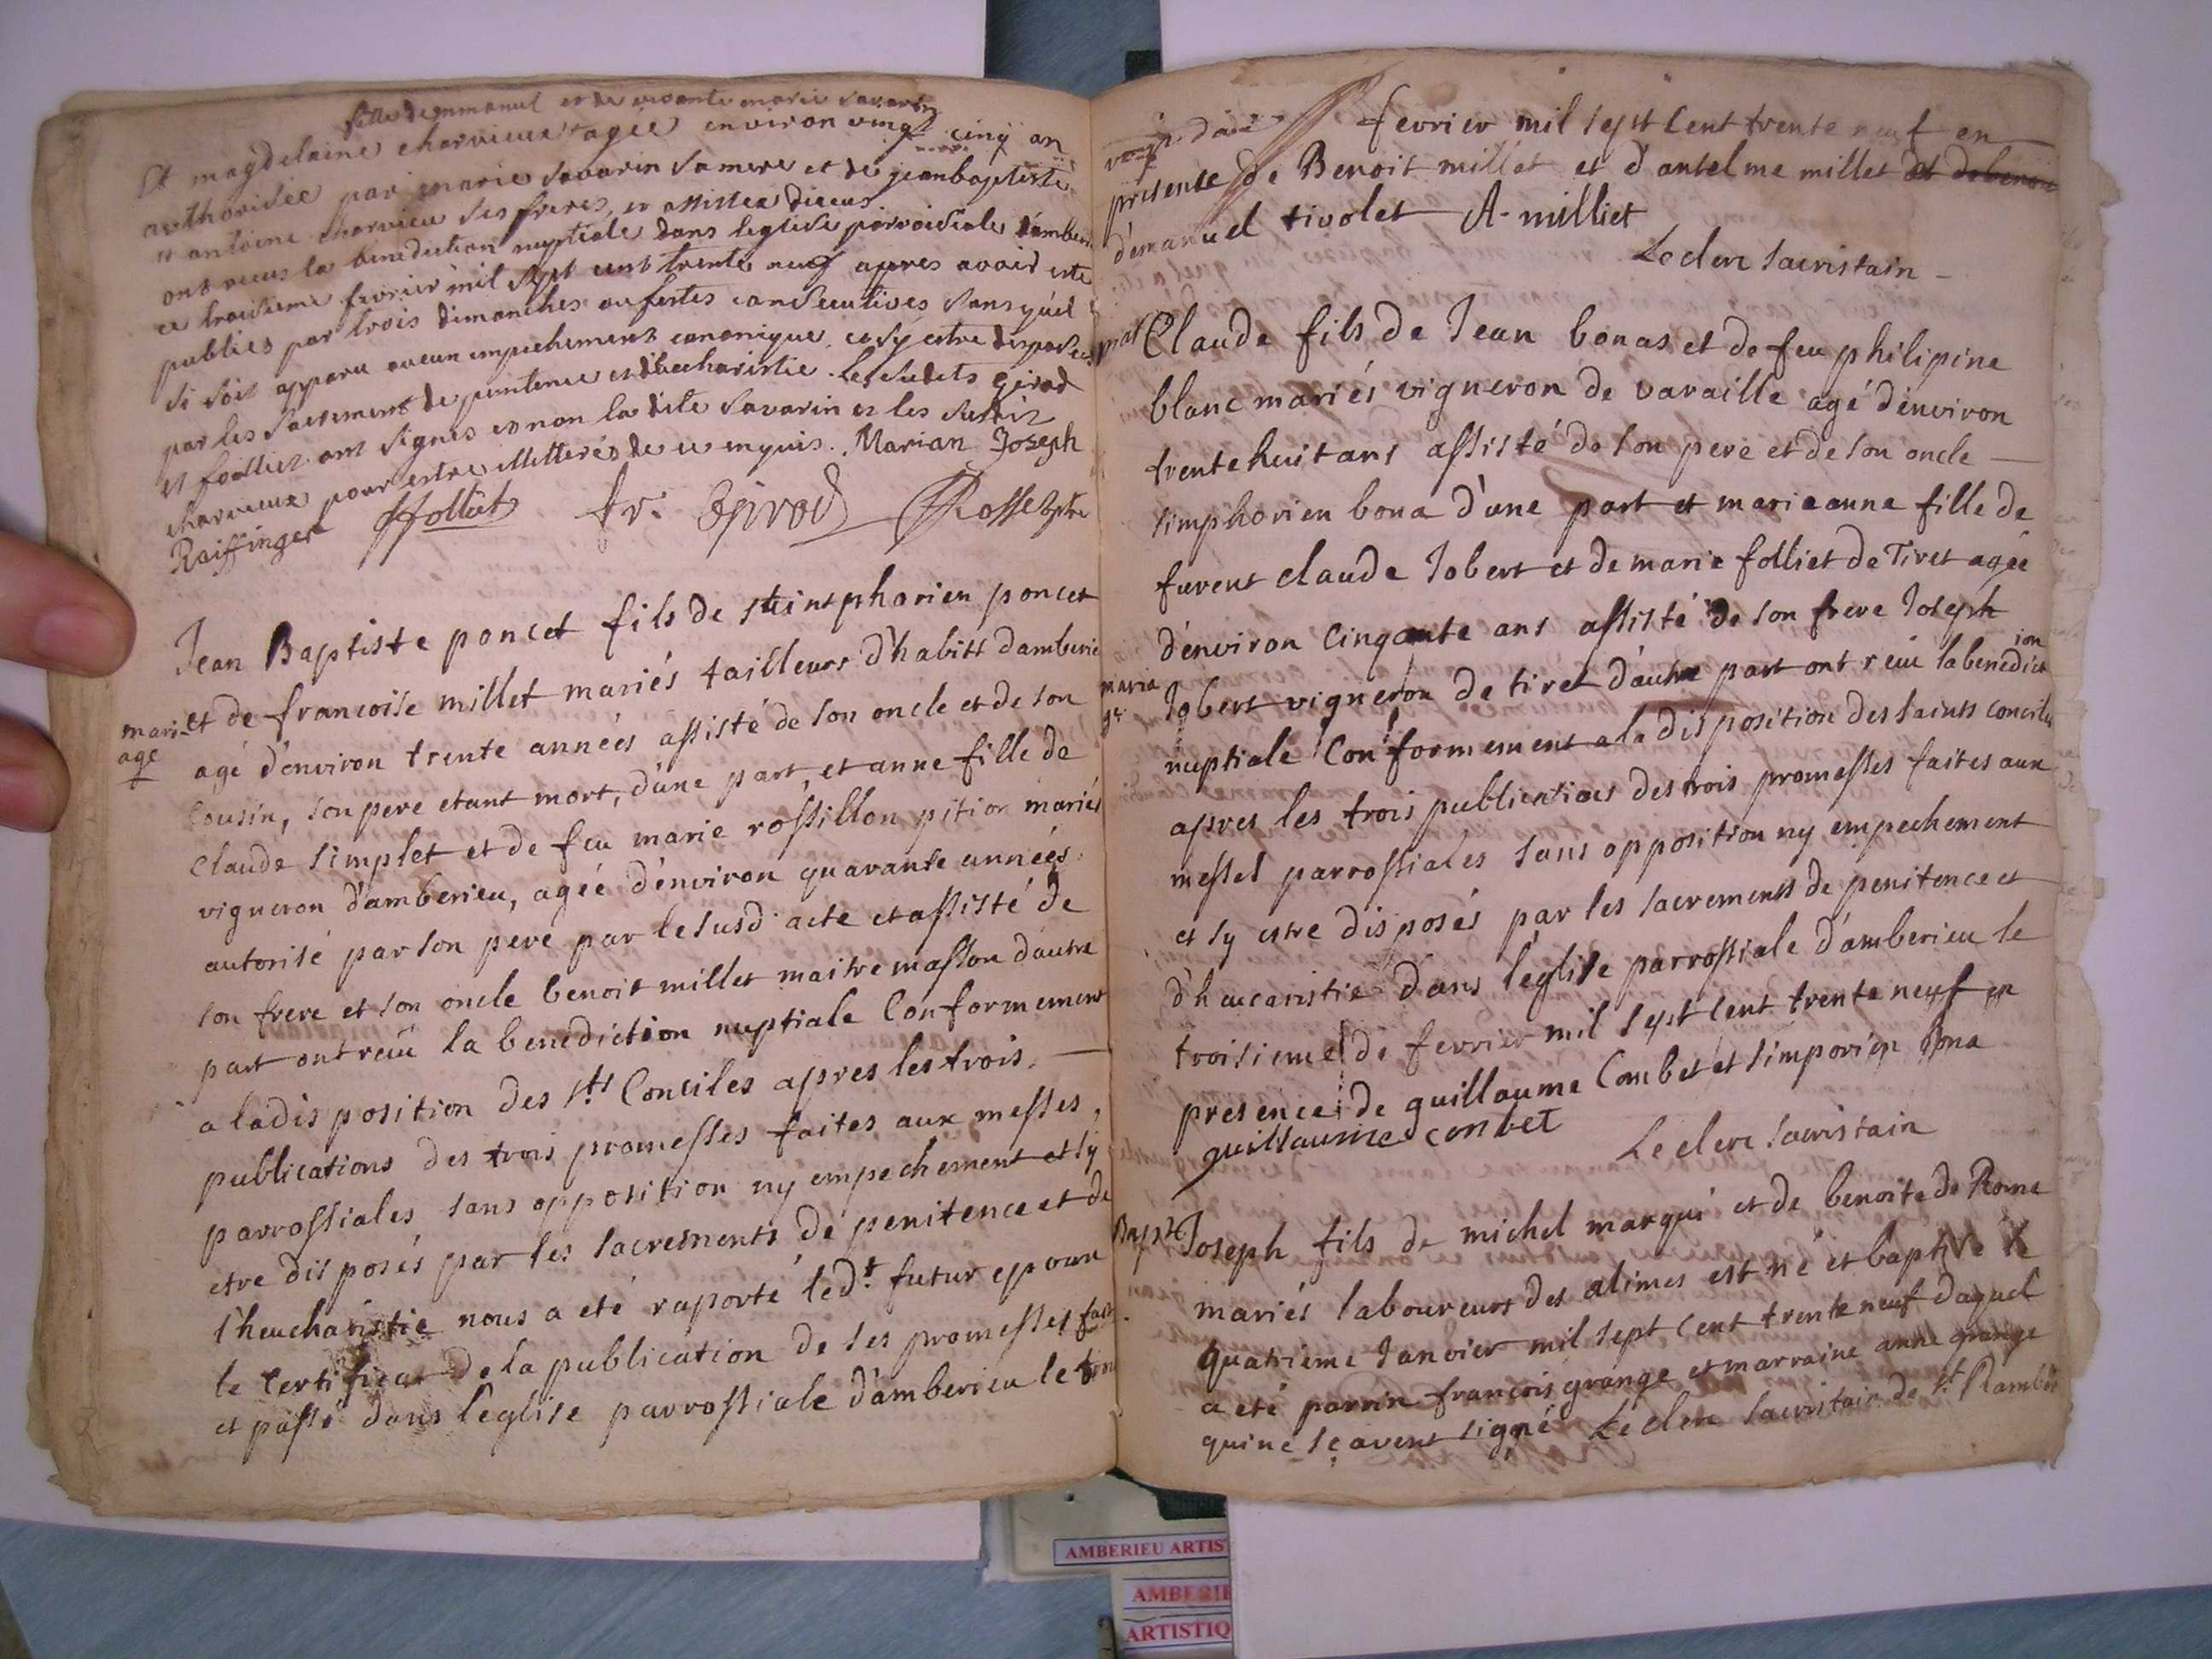 fille demmanuel et de vivante marie savarin
Et magdelaine charvieux agée environ vingt cinq an
authorisée par marie savarin sa mere et de jeanbaptiste
et antoine charvieu ses freres, et assistea diceus
ont receus la benediction nuptiale dans leglise parroissiale dámberi
ce troisieme fevrier mil sept cent trente neuf apres avoir esté
publiés par trois dimanches ou festes consecutives sans quil
si soit apparu aucun empechement canonique et sÿ estre disposes
par les sacrement de penitence et dEucharistie. les sudits Girod
et folliet ont signés et non la dite savarin et les susdit
charvieux pour estre illitterés de ce enquis. Marian Joseph
Raiffinger ffolliet fr. Girod
Jean Baptiste poncet fils de simphorien poncet
mari-
age
et de francoise millet mariés tailleurs d'habits damberie
agé d'environ trente années assisté de son oncle et de son
cousin, son pere etant mort, d'une part, et anne fille de
claude simplet et de feu marie rossillon pition mariés
vigneron d'amberieu, agée d'environ quarante années
autorisé par son pere par le susd acte et assisté de
son frere et son oncle benoit millet maitre masson d'autre
part ont reçu la benediction nuptiale conformement
a la disposition des sts Conciles apres les trois
publications des trois promesses faites aux messes,
parrossiales sans opposition ny empechement et sy
etre disposés par les sacrements de penitence et de
l'heucharistie nous a eté raporté led.t futur epoux
le certificat de la publication de ses promesses fait
et passé dans l'eglise parrossiale d'amberieu le
fevrier mil sept cent trente neuf en
presence de Benoit millet et d'antelme millet
d'emanuel tivolet A. milliet
Leclerc sacristain
Claude fils de Jean bonas et de feu philipine
blanc mariés vigneron de varaille agé d'environ
trentehuit ans assisté de son pere et de son oncle
simphorien bona d'une part et marieanne fille de
furent claude Jobert et de marie folliet de Tiret agée
d'environ cinqante ans assisté de son frere Joseph
maria
ge
Jobert vigneron de tiret d'autre part ont reçu la benediction
nuptiale Conformement a la disposition des saints conciles
apres les trois publications des trois promesses faites aux
messes parrossiales sans opposition ny empechement
et sy estre disposés par les sacrements de penitence et
d'heucaristie dans l'eglise parrossiale d'amberieu le
troisieme de fevrier mil sept cent trente neuf en
presence de guillaume Combet et simporien bona
guillaume conbet
Leclerc sacristain
Bapt
Joseph fils de michel marqui et de benoite de Rome
mariés laboureurs des alimes est né et baptisé le
quatrieme Janvier mil sept cent trente neuf daquel
a eté parrin francois grange et marraine anne grange
qui ne sçavent signé Leclerc sacristain de St Rambert
AMBERIEU ARTIS
AMBERIE
ARTISTIQ